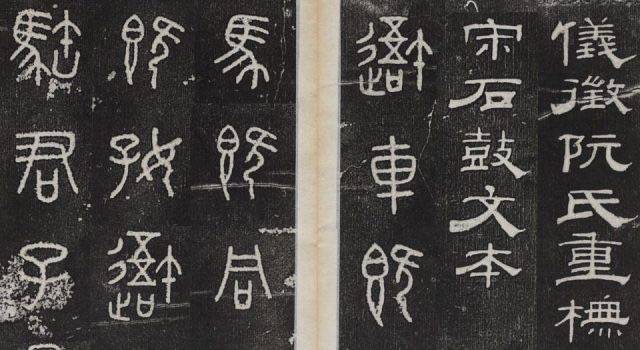 儀徵阮氏重橅
宋石鼓文本
車既
馬既同
既好
君子